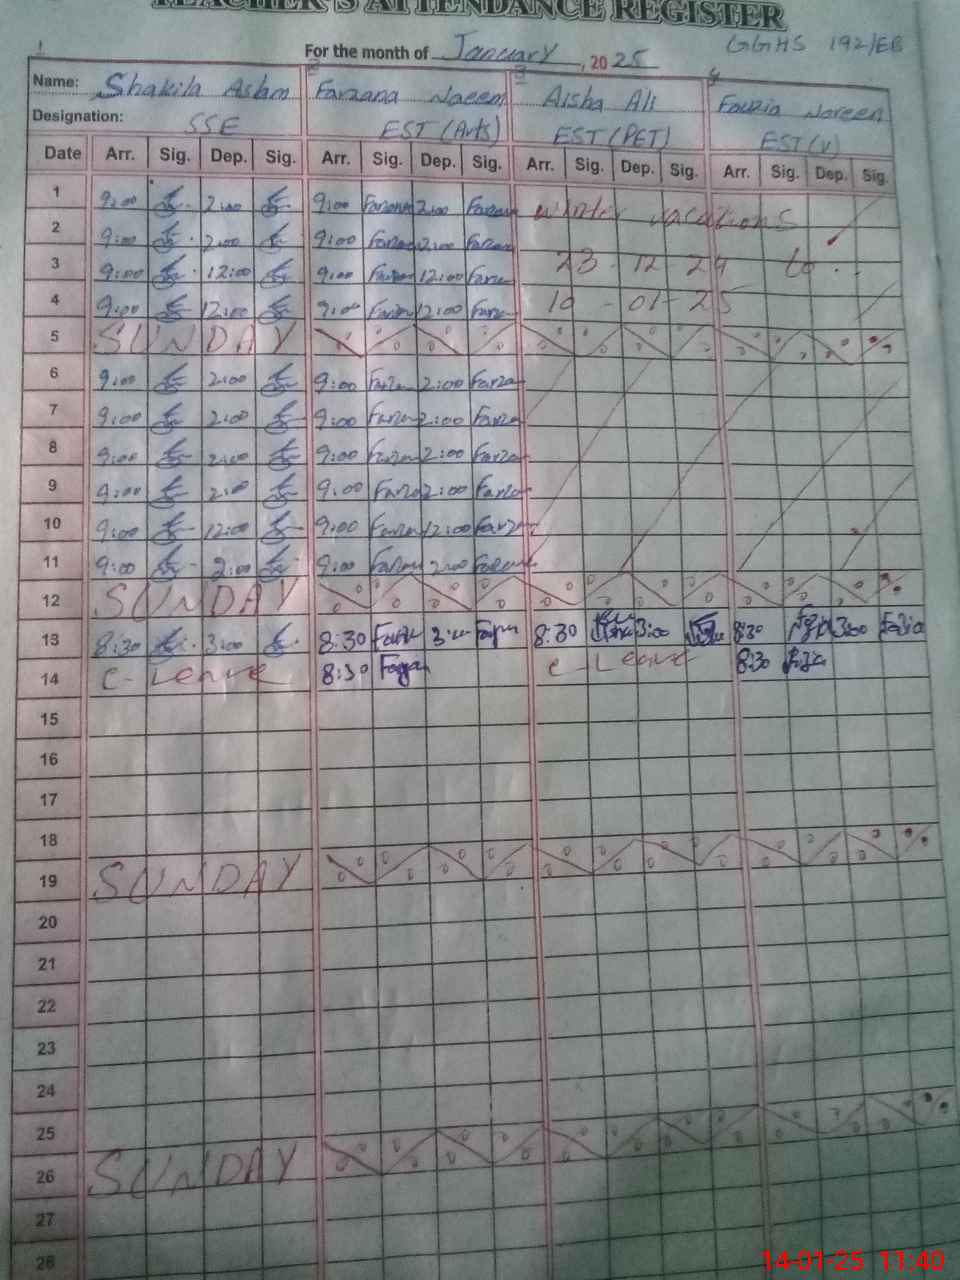 TEACHER'S ATTENDANCE REGISTER
GGHS 192/EB
For the month of January, 2025
1 2 3 4
Name: Shakila Aslam Farzana Naeem Aisha Ali Fauzia Noreen
Designation: SSE EST (Arts) EST (PET) EST (V)
Date Arr. Sig. Dep. Sig. Arr. Sig. Dep. Sig. Arr. Sig. Dep. Sig. Arr. Sig. Dep. Sig.
1 9:00 2:00 9:00 2:00 winter vacations
2 9:00 2:00 9:00 2:00
3 9:00 12:00 9:00 12:00 23-12-24 to
4 9:00 12:00 9:00 12:00 10-01-25
5 SUNDAY
6 9:00 2:00 9:00 Farza 2:00 Farza
7 9:00 2:00 9:00 2:00 Farza
8 9:00 2:00 9:00 2:00 Farza
9 9:00 2:00 9:00 2:00
10 9:00 12:00 9:00 12:00 Farza
11 9:00 2:00 9:00 2:00
12 SUNDAY
13 8:30 3:00 8:30 3:00 8:30 3:00 8:30 3:00
14 C-Leave 8:30 C-Leave 8:30
15
16
17
18
19 SUNDAY
20
21
22
23
24
25
26 SUNDAY
27
28
14-01-25 11:40